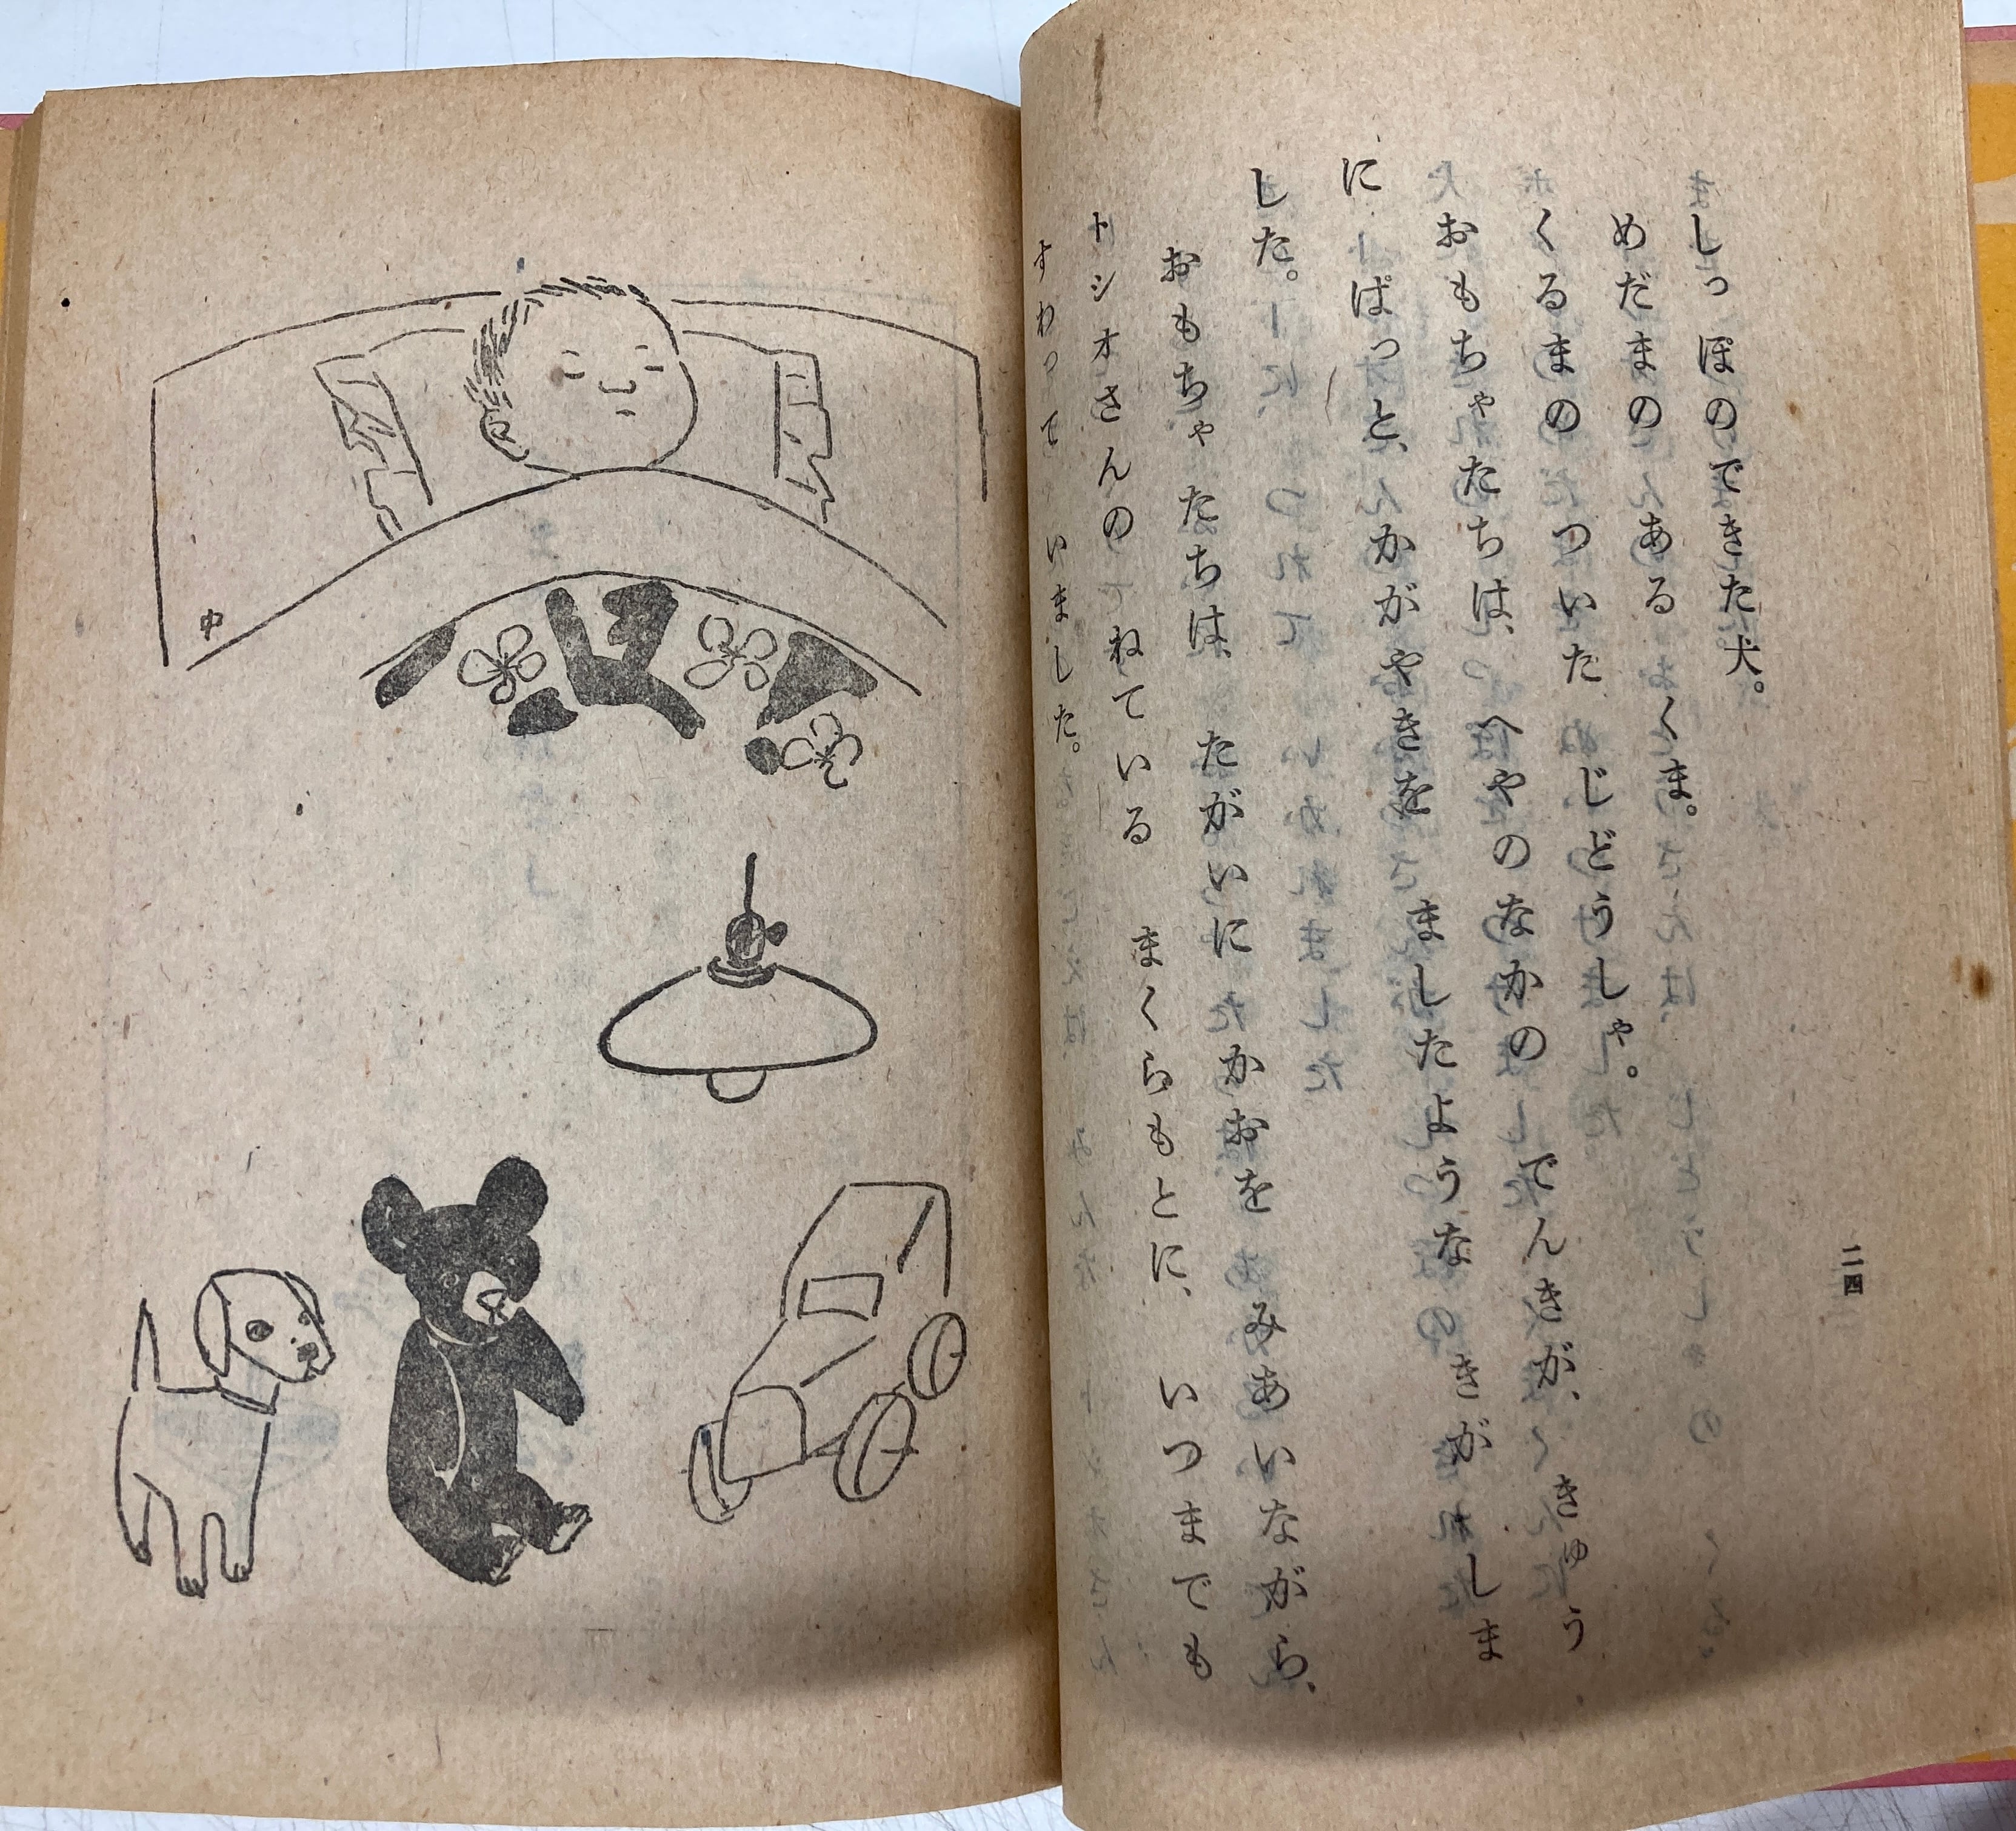 しっぽのできた犬。
めだまのある　くま。
くるまの　ついた　じどうしゃ。
おもちゃたちは、へやのなかの　でんきが、きゅう
に　ぱっと、かがやきを　ましたような　きが　しま
した。
おもちゃたちは、たがいにかおを　みあいながら、
トシオさんの　ねている　まくらもとに、いつまでも
すわって　いました。
二四
中